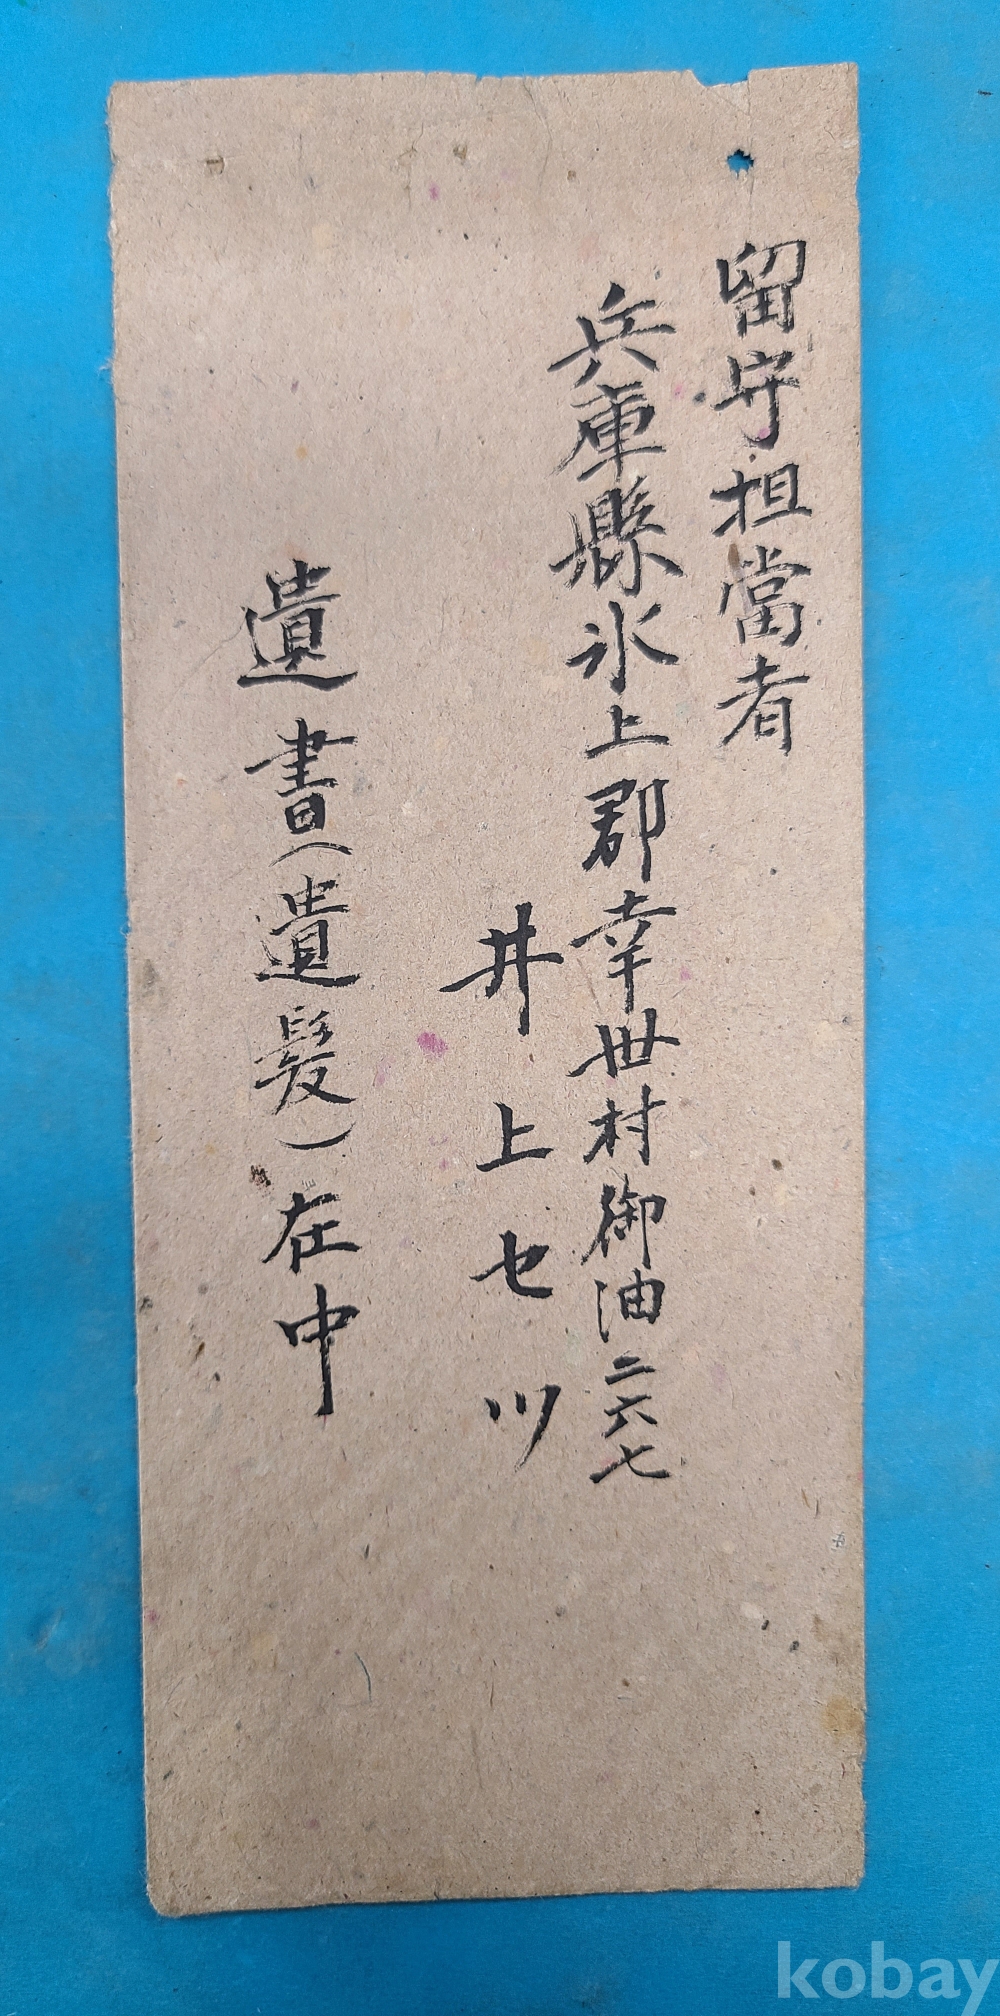 留守担當者
兵庫縣氷上郡幸世村御油二六七
井上セツ
遺書(遺髪)在中
kobay